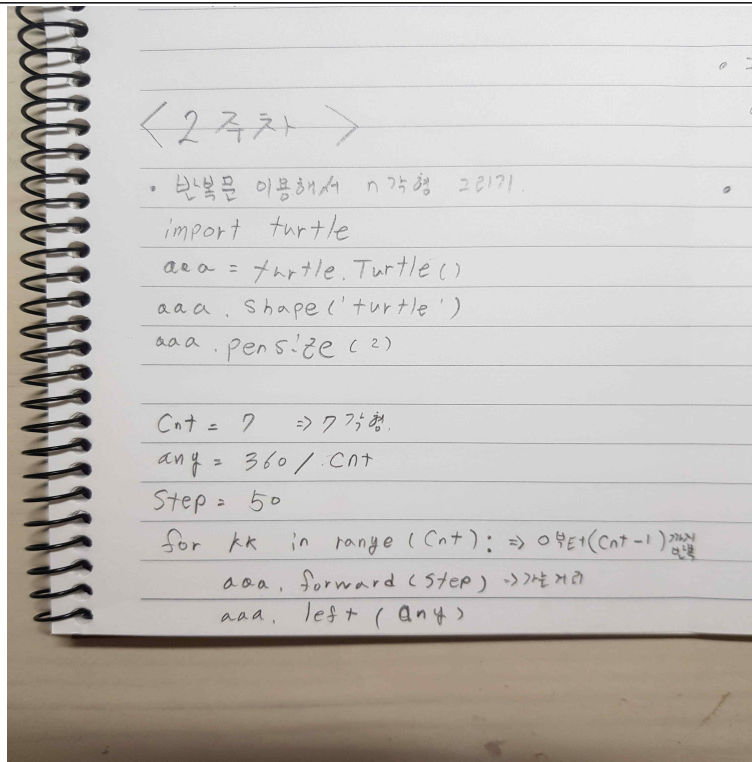 <2주차>
• 반복문 이용해서 n각형 그리기.
import turtle
aaa = turtle.Turtle()
aaa.shape('turtle')
aaa.pensize(2)
Cnt = 7 => 7각형.
any = 360 / Cnt
Step = 50
for kk in range (Cnt): => 0부터(Cnt-1)까지 반복
aaa. forward (step) -> 가는거리
aaa. left (any)